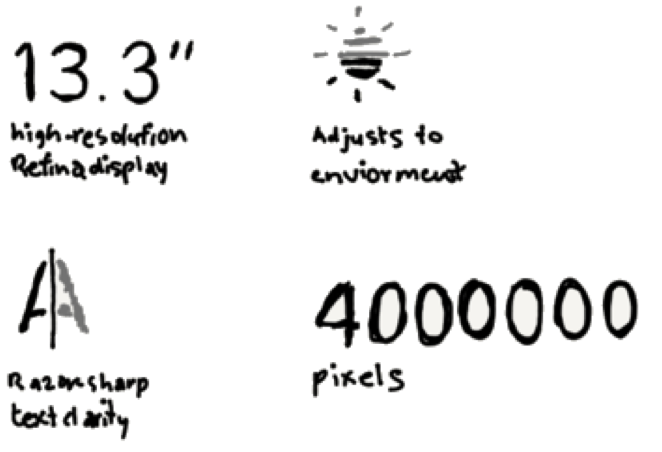 13.3"
high-resolution
Retina display
Adjusts to
enviorment
A A
Razorsharp
text clarity
4000000
pixels